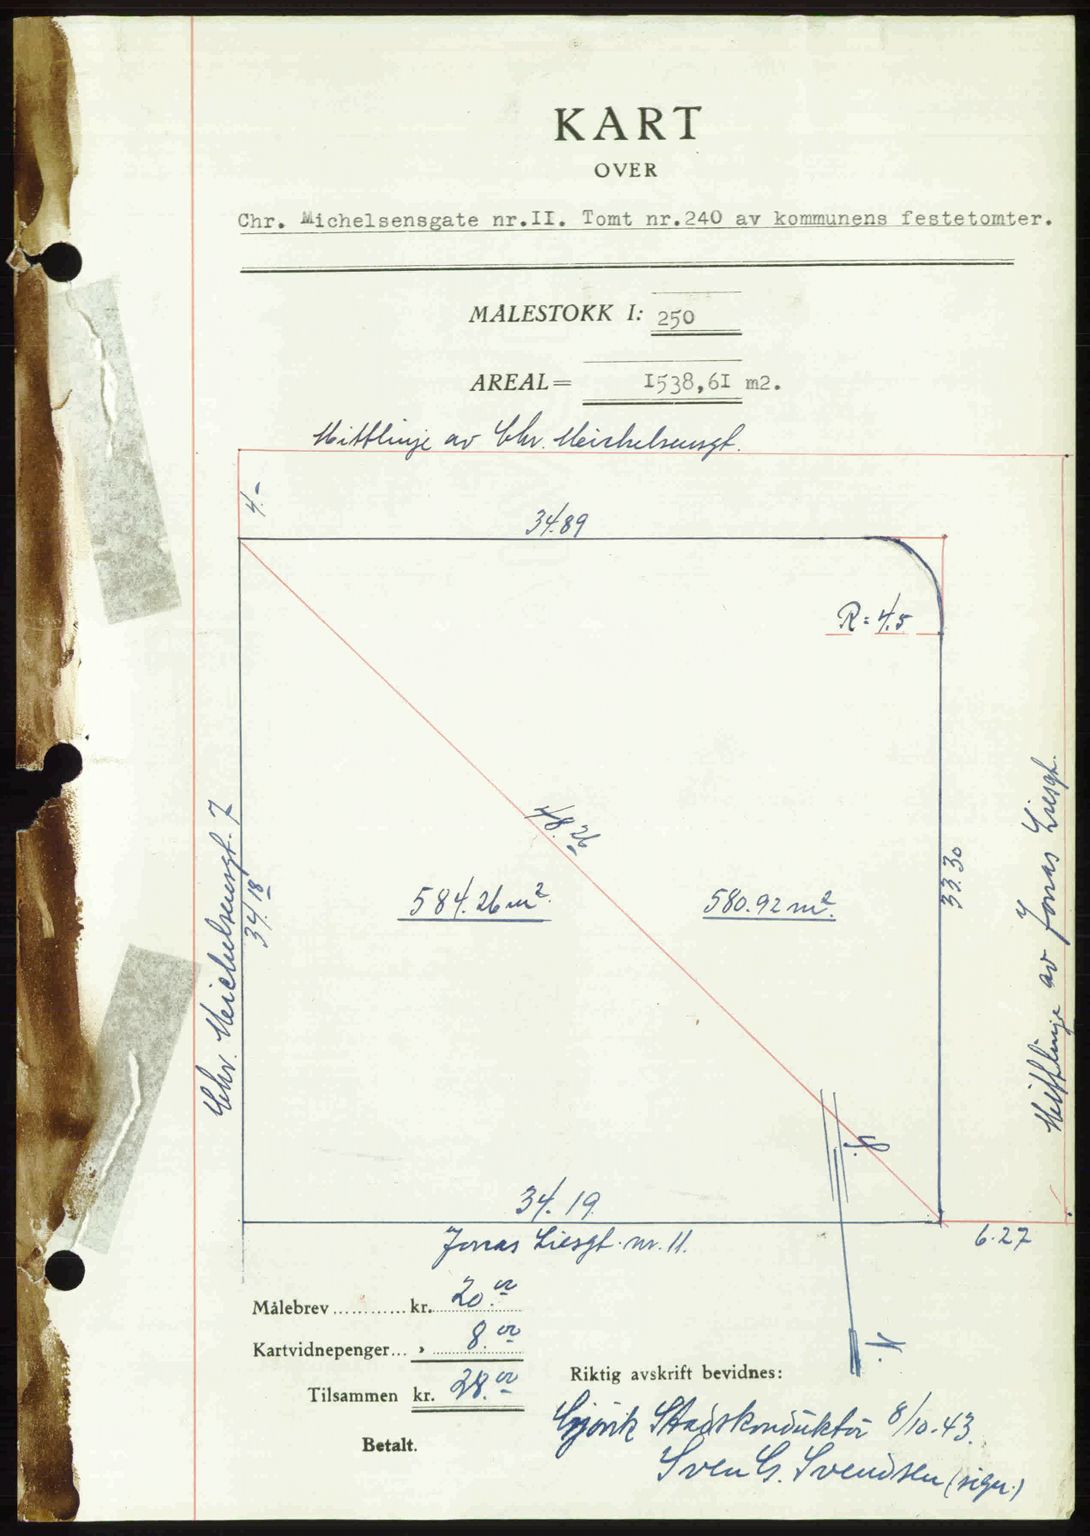 KART
OVER
Chr. Michelsensgate nr.II. Tomt nr.240 av kommunens festetomter.
MÅLESTOKK I: 250
AREAL= I538,6I m2.
Mittlinje av Chr. Meichelsensgt.
4.-
34.89
R = 4.5
48.26
Chr. Meichelsensgt. 7
34.18
584.26 m2.
580.92 m2.
33.30
Mittlinje av Jonas Liesgt.
S.
34.19
Jonas Liesgt. nr. 11.
6.27
N.
Målebrev ........... kr. 20.00
Kartvidnepenger... » 8.00
Tilsammen kr. 28.00
Betalt.
Riktig avskrift bevidnes:
Gjøvik Stadskonduktør 8/10.43.
Sven G. Svendsen (sign.)